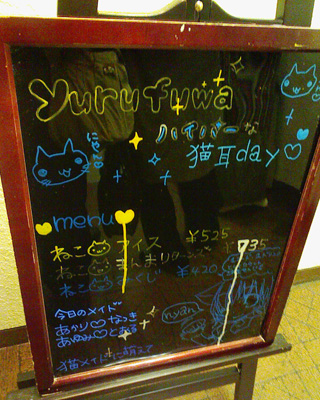 yurufuwa
ハイパーな
猫耳day♡
menu
ねこ アイス ¥525
ねこ まんまリターンズ 735
ねこ くじ ¥420
今日のメイド
あかり♡なつき
あゆみ♡とある
nyan
猫メイドに萌えて